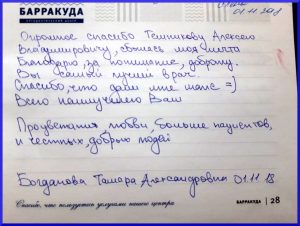 БАРРАКУДА
01.11.2018
Огромное спасибо Темникову Алексею
Владимировичу, сбылась моя мечта
Благодарю за понимание, доброту.
Вы самый лучший врач.
Спасибо, что дали мне шанс =)
Всего наилучшего Вам
Процветания любви, больше пациентов,
и честных, добрых людей
Богданова Тамара Александровна 01.11.18
Спасибо, что пользуетесь услугами нашего центра
БАРРАКУДА | 28